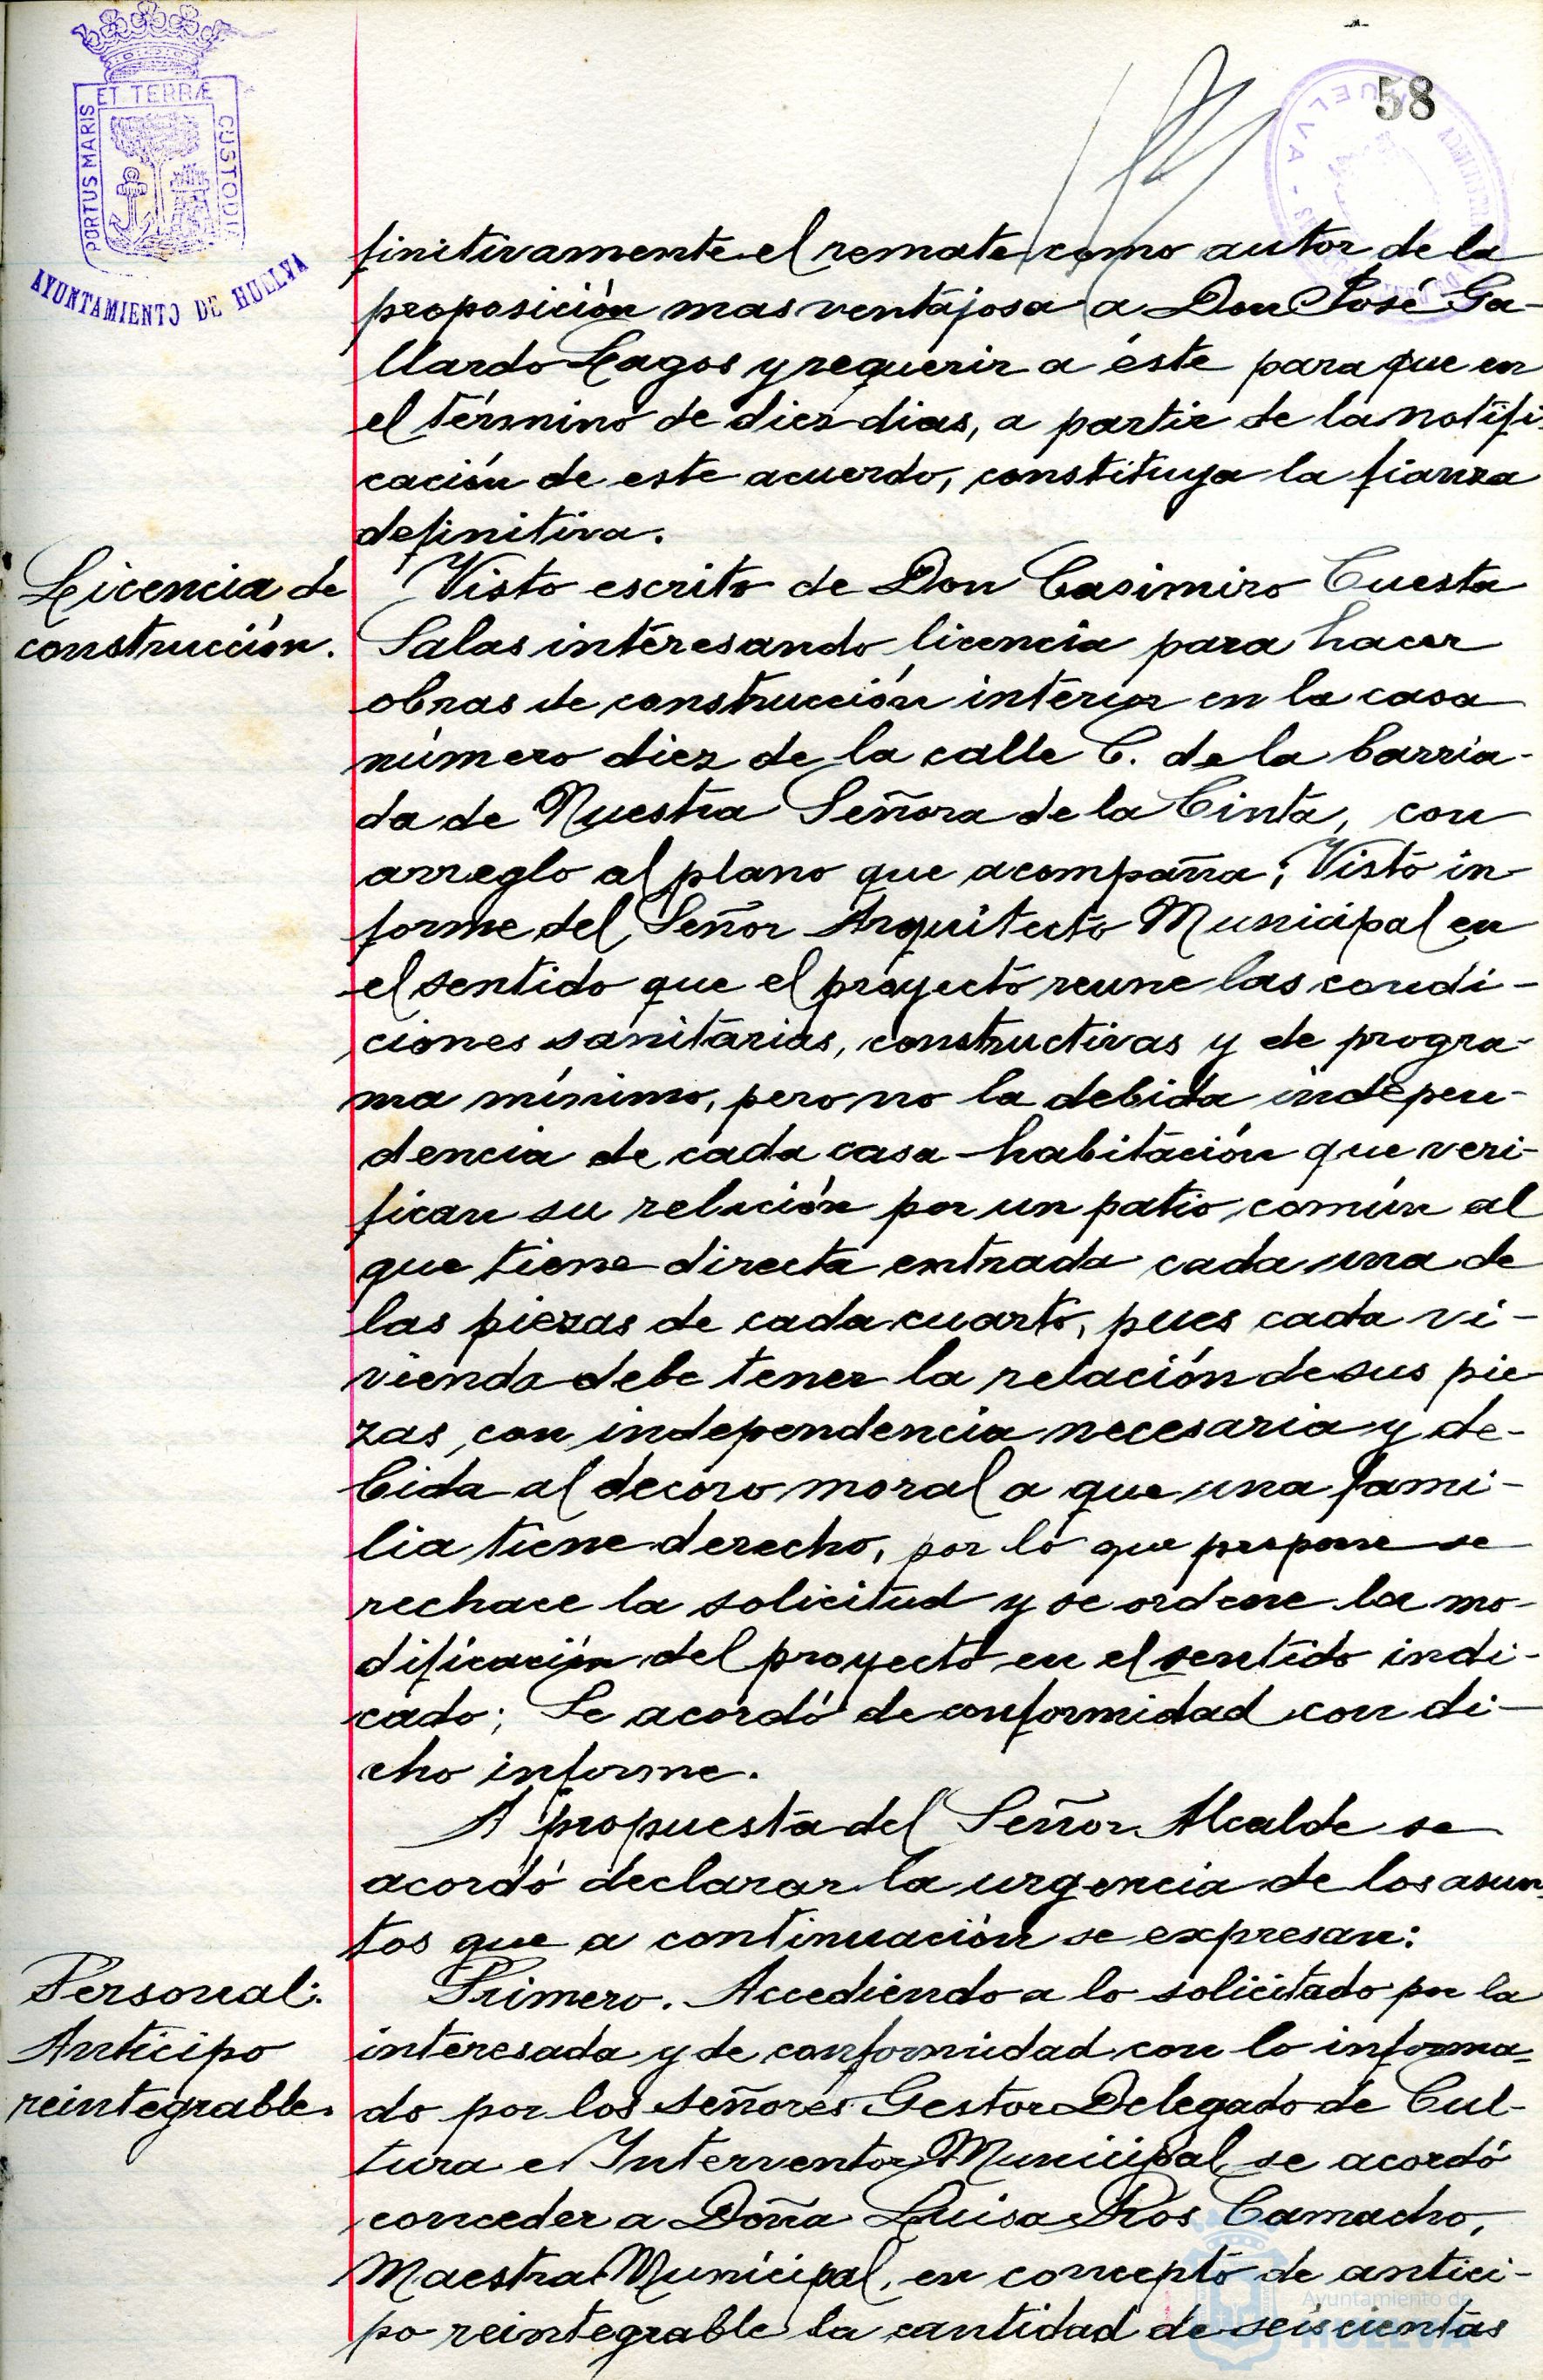 58
PORTUS MARIS ET TERRÆ CUSTODIA
AYUNTAMIENTO DE HUELVA
HUELVA
finitivamente el remate como autor de la
proposición mas ventajosa a Don José Ga-
llardo Lagos y requerir a éste para que en
el término de diez dias, a partir de la notifi-
cación de este acuerdo, constituya la fianza
definitiva.
Licencia de
construcción.
Visto escrito de Don Casimiro Cuesta
Salas interesando licencia para hacer
obras de construcción interior en la casa
número diez de la calle C. de la barria-
da de Nuestra Señora de la Cinta, con
arreglo al plano que acompaña; Visto in-
forme del Señor Arquitecto Municipal en
el sentido que el proyecto reune las condi-
ciones sanitarias, constructivas y de progra-
ma mínimo, pero no la debida indepen-
dencia de cada casa-habitación que veri-
fican su relación por un patio común al
que tiene directa entrada cada una de
las piezas de cada cuarto, pues cada vi-
vienda debe tener la relación de sus pie
zas, con independencia necesaria y de-
bida al decoro moral a que una fami-
lia tiene derecho, por lo que propone se
rechace la solicitud y se ordene la mo-
dificación del proyecto en el sentido indi-
cado; Se acordó de conformidad con di-
cho informe.
A propuesta del Señor Alcalde se
acordó declarar la urgencia de los asun-
tos que a continuación se expresan:
Personal:
Anticipo
reintegrable.
Primero. Accediendo a lo solicitado por la
interesada y de conformidad con lo informa-
do por los señores Gestor Delegado de Cul-
tura e Interventor Municipal se acordó
conceder a Doña Luisa Ros Camacho,
Maestra Municipal, en concepto de antici-
po reintegrable la cantidad de seiscientas
Ayuntamiento de
HUELVA